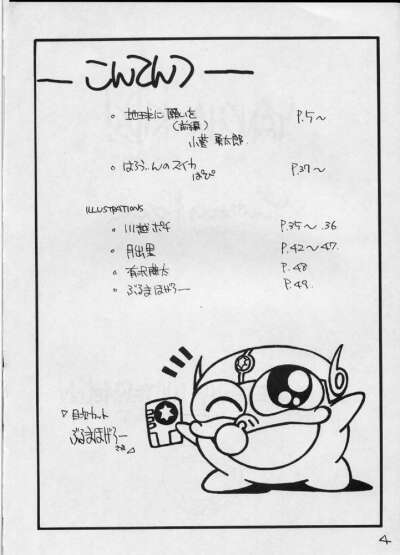 こんてんつ
・地球に願いを P.5〜
(前編)
小菅 勇太郎
・はろぃんのスイカ P.27〜
はぴ
ILLUSTRATIONS
・川越ポチ P.35〜.36
・月出里 P.42〜47.
・有沢 P.48
・ぶるまほげろー P.49.
▽目次カット
ぶるまほげろー
4